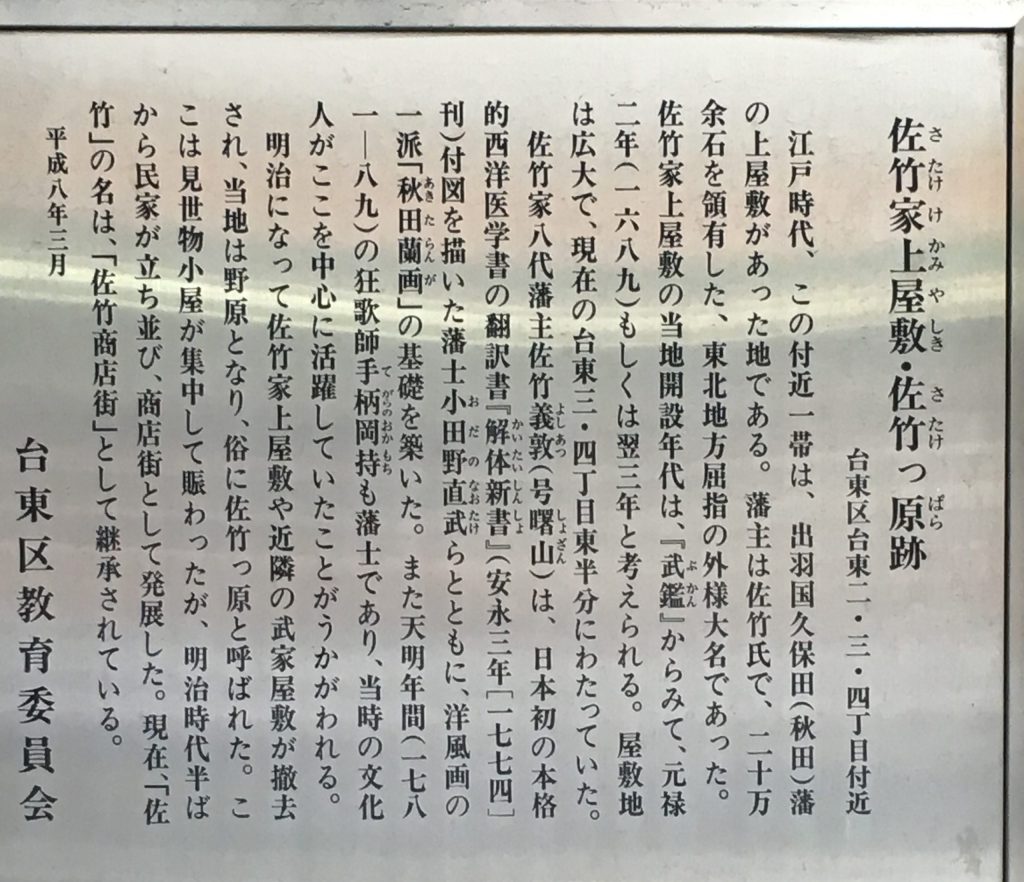 佐竹家上屋敷・佐竹っ原跡
台東区台東二・三・四丁目付近
江戸時代、この付近一帯は、出羽国久保田(秋田)藩
の上屋敷があった地である。藩主は佐竹氏で、二十万
余石を領有した、東北地方屈指の外様大名であった。
佐竹家上屋敷の当地開設年代は、『武鑑』からみて、元禄
二年(一六八九)もしくは翌三年と考えられる。屋敷地
は広大で、現在の台東三・四丁目東半分にわたっていた。
佐竹家八代藩主佐竹義敦(号曙山)は、日本初の本格
的西洋医学書の翻訳書『解体新書』(安永三年[一七七四]
刊)付図を描いた藩士小田野直武らとともに、洋風画の
一派「秋田蘭画」の基礎を築いた。また天明年間(一七八
一―八九)の狂歌師手柄岡持も藩士であり、当時の文化
人がここを中心に活躍していたことがうかがわれる。
明治になって佐竹家上屋敷や近隣の武家屋敷が撤去
され、当地は野原となり、俗に佐竹っ原と呼ばれた。こ
こは見世物小屋が集中して賑わったが、明治時代半ば
から民家が立ち並び、商店街として発展した。現在、「佐
竹」の名は、「佐竹商店街」として継承されている。
平成八年三月
台東区教育委員会